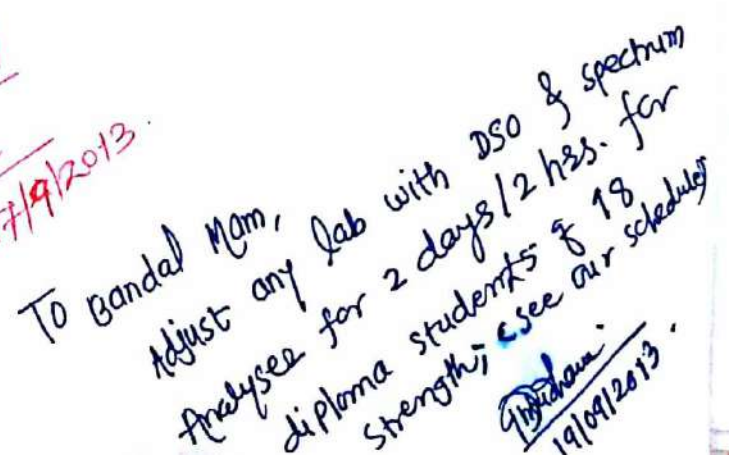 7/9/2013.
To Bandal Mam,
Adjust any lab with DSO & spectrum
Analyser for 2 days/2 hrs. for
diploma students of 18
strength; see our schedule
19/09/2013.